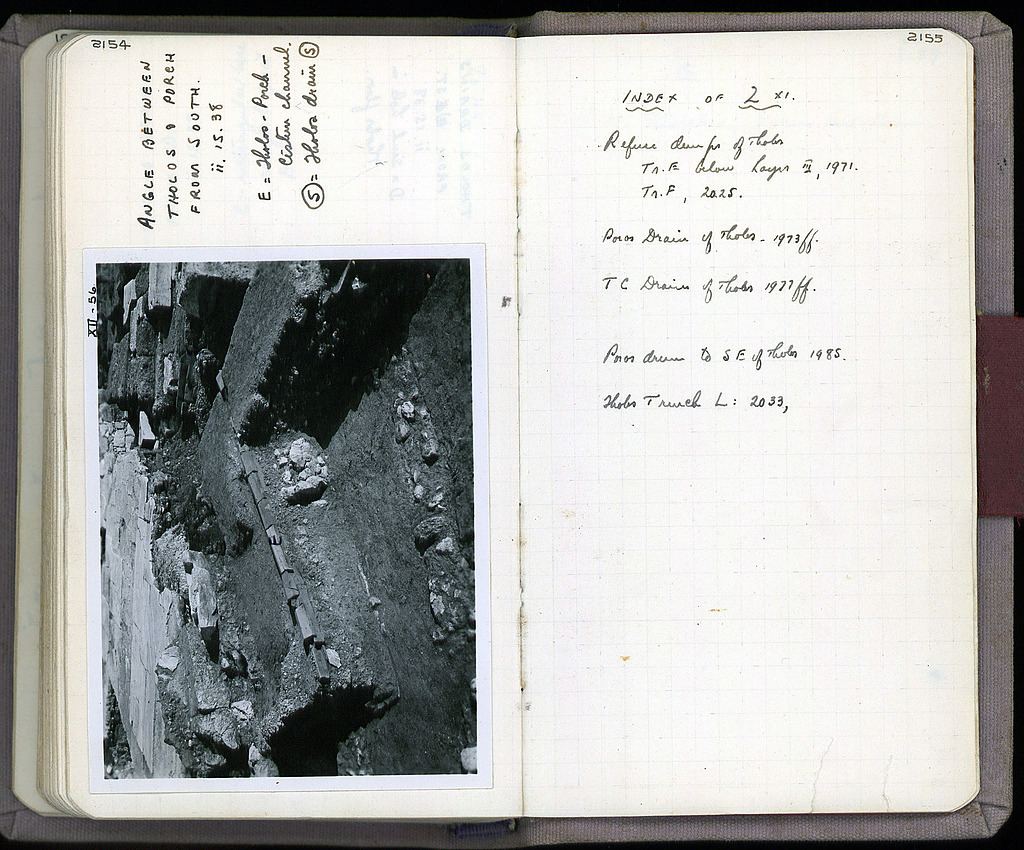 2154
ANGLE BETWEEN
THOLOS & PORCH
FROM SOUTH.
ii. 15. 38
E = Tholos-Porch-
Cistern channel.
Ⓢ = Tholos drain Ⓢ
XII-56
2155
INDEX OF Z XI.
Refuse dumps of Tholos
Tr. E below Layer III, 1971.
Tr. F, 2025.
Poros Drain of Tholos - 1973ff.
TC Drains of Tholos 1977ff.
Poros drum to SE of Tholos 1985.
Tholos Trench L: 2033,